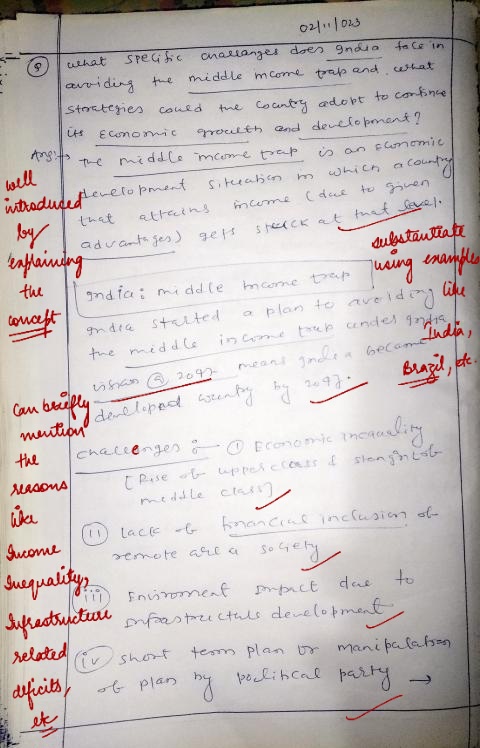 02/11/023
Q what specific challanges does India face in
avoiding the middle income trap and what
strategies could the country adopt to continue
its economic growth and development?
Ans:→ The middle income trap is an economic
development situation in which a country
that attains income (due to given
advantages) gets stuck at that level.
well
introduced
by
explaining
the
concept
substantiate
using examples
like
India,
Brazil, etc.
India: middle Income trap
India started a plan to avoiding
the middle income trap under India
vision @ 2047 means India became
developed country by 2047.
Can briefly
mention
the
reasons
like
Income
Inequality,
Infrastructure
related
deficits,
etc
challenges :- (i) Economic inequality
[Rise of upper class &
middle class]
(ii) lack of financial inclusion of
remote area society
(iii) Enviroment impact due to
infrastructure development
(iv) short term plan or manipulation
of plan by political party →